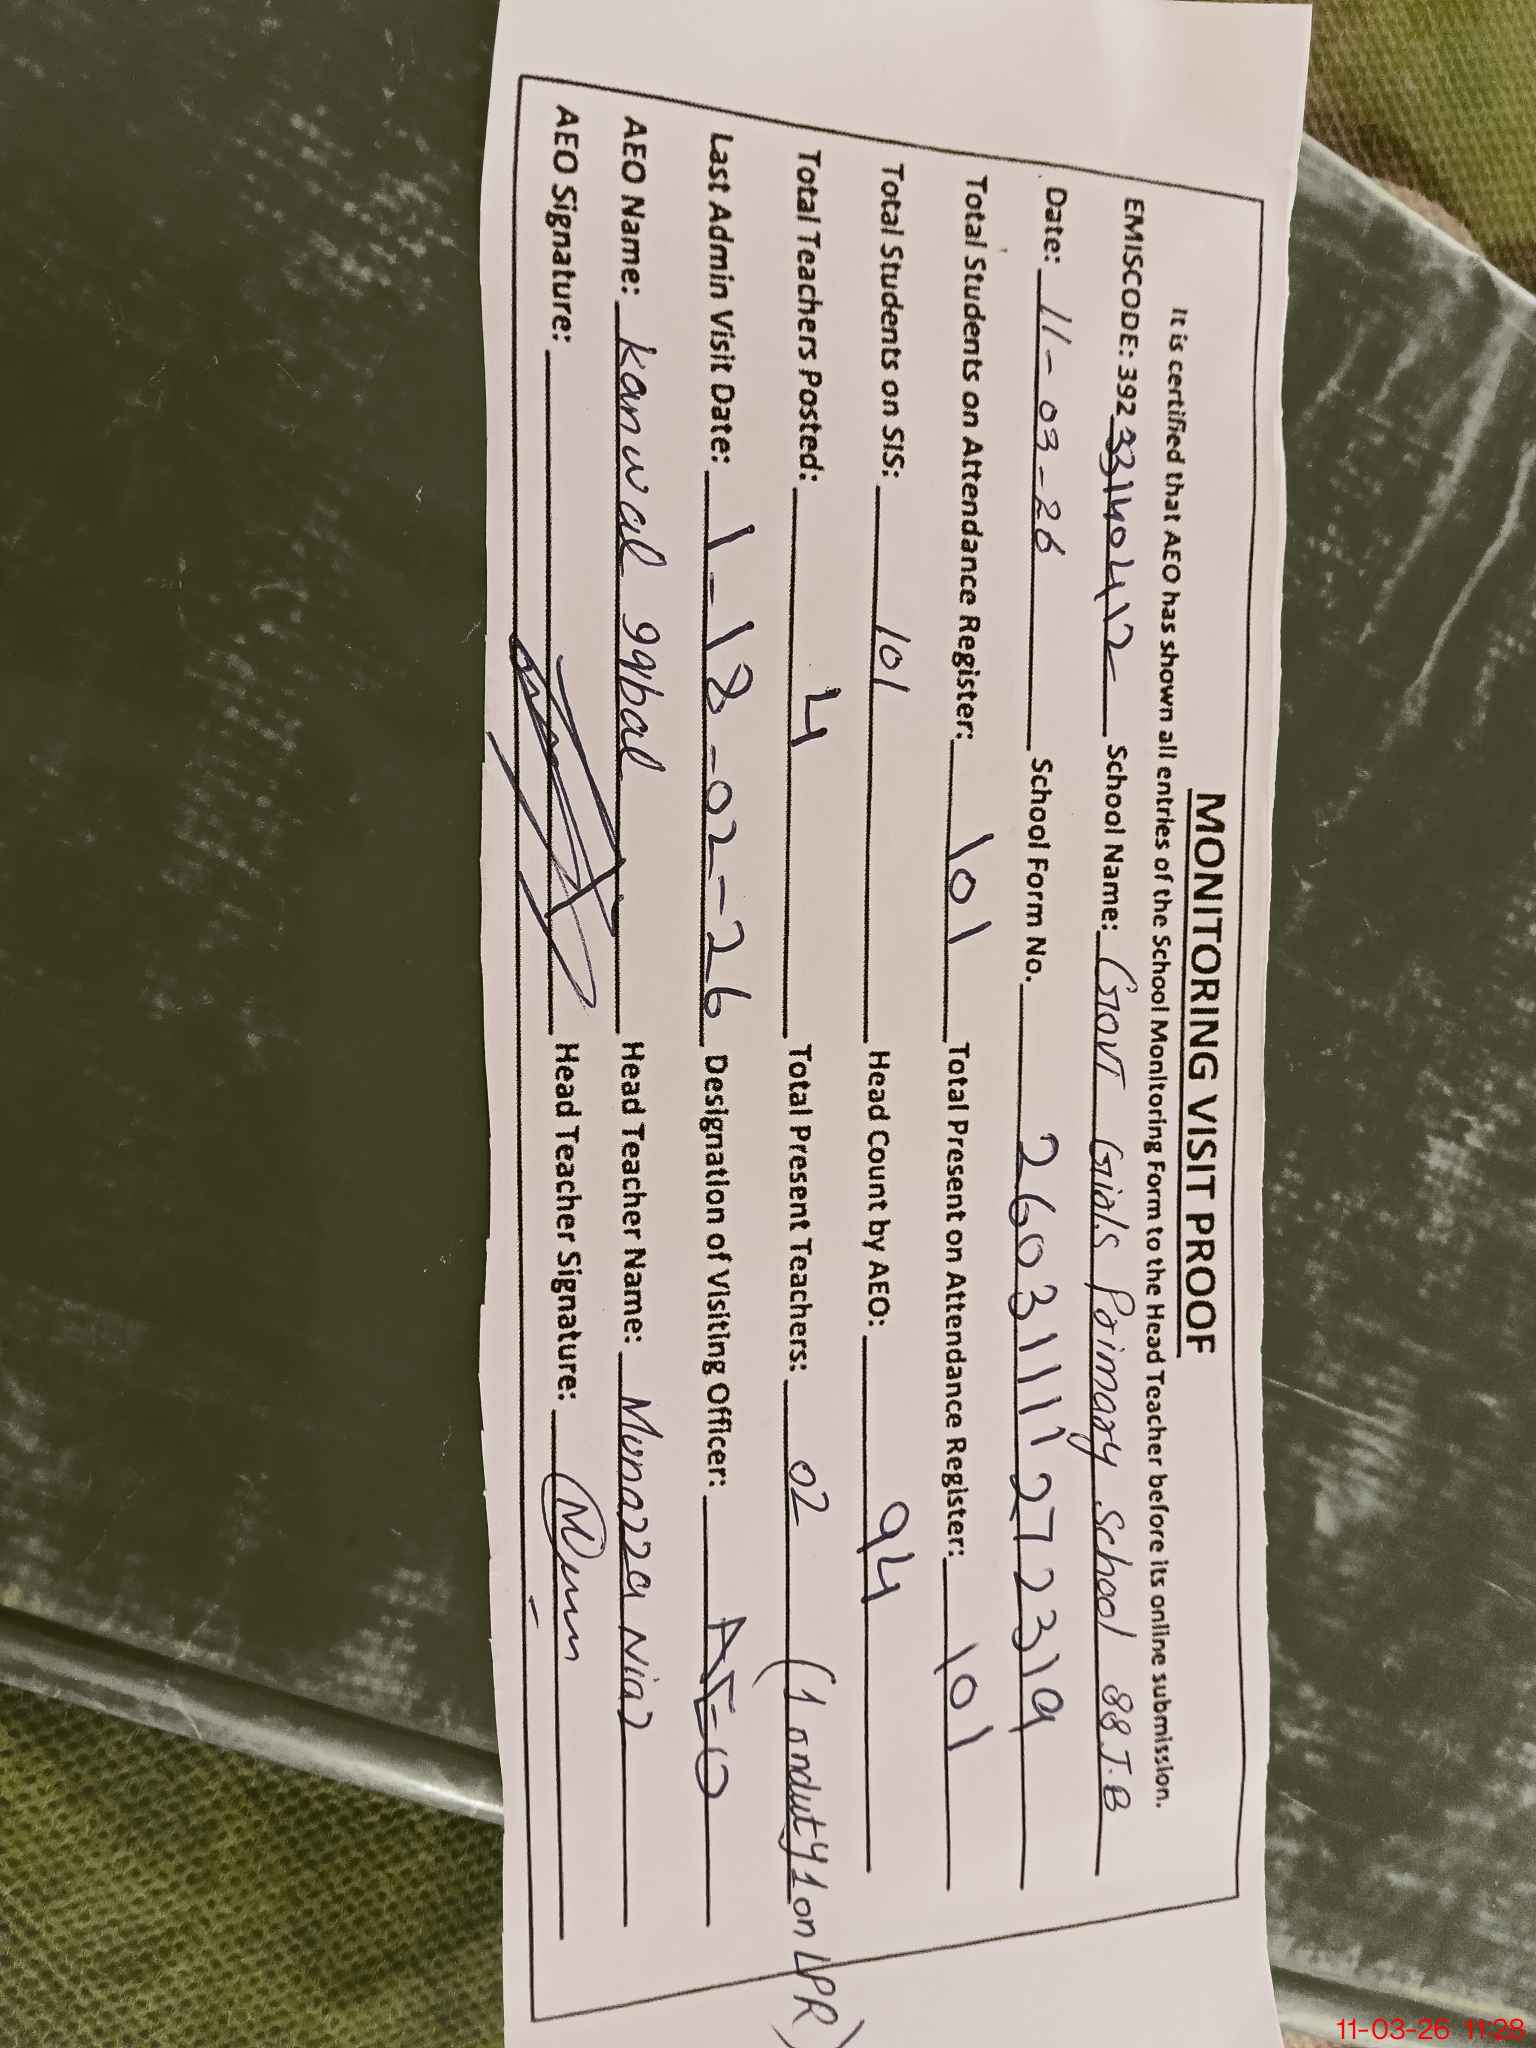 MONITORING VISIT PROOF
It is certified that AEO has shown all entries of the School Monitoring Form to the Head Teacher before its online submission.
EMISCODE: 392 33140412 School Name: Govt Girls Primary School 88.T.B
Date: 11-03-26 School Form No. 2603111127 2319
Total Students on Attendance Register: 101 Total Present on Attendance Register: 101
Total Students on SIS: 101 Head Count by AEO: 94
Total Teachers Posted: 4 Total Present Teachers: 02 (1 onduty 1 on LPR)
Last Admin Visit Date: 1-18-02-26 Designation of Visiting Officer: AEO
AEO Name: Kanwal Iqbal Head Teacher Name: Munazza Niaz
AEO Signature: Head Teacher Signature:
11-03-26 11:28